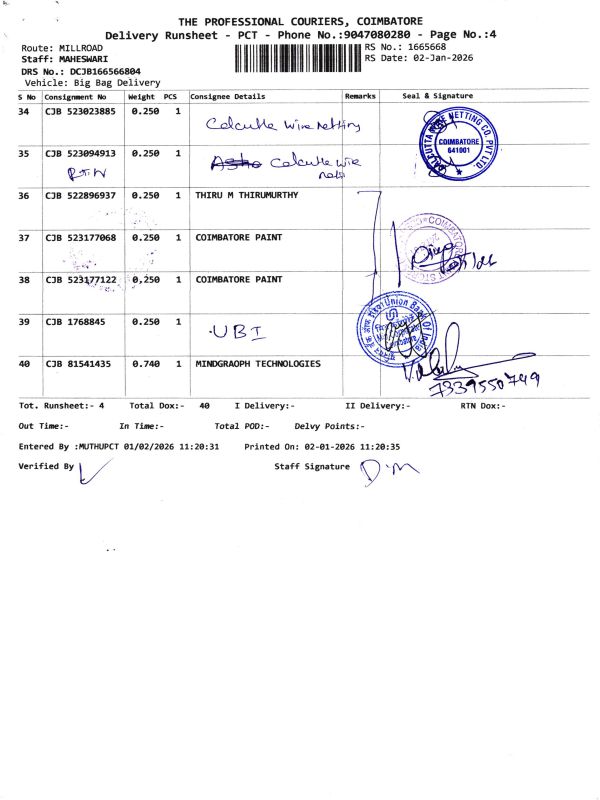 THE PROFESSIONAL COURIERS, COIMBATORE
Delivery Runsheet - PCT - Phone No.:9047080280 - Page No.:4
Route: MILLROAD
RS No.: 1665668
Staff: MAHESWARI
RS Date: 02-Jan-2026
DRS No.: DCJB166566804
Vehicle: Big Bag Delivery
S No Consignment No Weight PCS Consignee Details Remarks Seal & Signature
34 CJB 523023885 0.250 1 Calcutta Wire Netting
CALCUTTA WIRE NETTING CO. PVT LTD.
COIMBATORE
641001
35 CJB 523094913 0.250 1 Calcutta Wire
36 CJB 522896937 0.250 1 THIRU M THIRUMURTHY
37 CJB 523177068 0.250 1 COIMBATORE PAINT
COIMBATORE
38 CJB 523177122 0,250 1 COIMBATORE PAINT
39 CJB 1768845 0.250 1 UBI
Union Bank Of India
40 CJB 81541435 0.740 1 MINDGRAOPH TECHNOLOGIES
7339550749
Tot. Runsheet:- 4 Total Dox:- 40 I Delivery:- II Delivery:- RTN Dox:-
Out Time:- In Time:- Total POD:- Delvy Points:-
Entered By :MUTHUPCT 01/02/2026 11:20:31 Printed On: 02-01-2026 11:20:35
Verified By Staff Signature